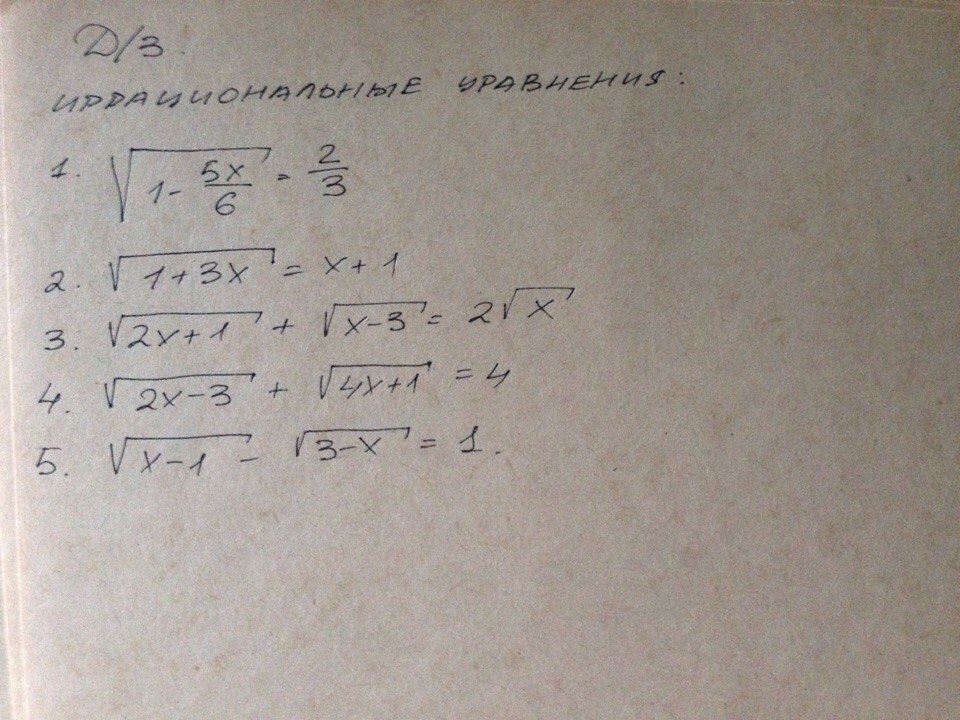 Д/З.
ИРРАЦИОНАЛЬНЫЕ УРАВНЕНИЯ:
1. √(1 - 5x/6) = 2/3
2. √(1+3x) = x+1
3. √(2x+1) + √(x-3) = 2√x
4. √(2x-3) + √(4x+1) = 4
5. √(x-1) - √(3-x) = 1.